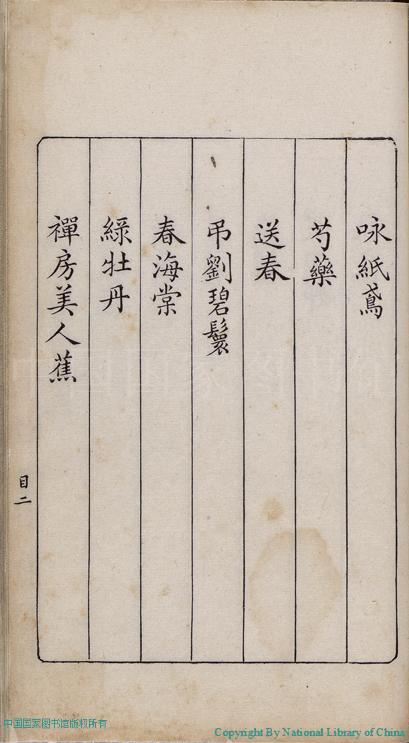 咏紙鳶
芍藥
送春
吊劉碧鬟
春海棠
綠牡丹
禪房美人蕉
目二
中国国家图书馆版权所有
Copyright By National Library of China